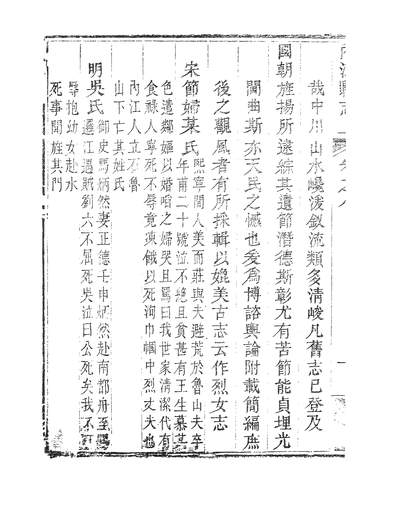 縣志
卷之八
哉中川山水巉潑釵流類多清峻凡舊志已登及
國朝旌揚所遠綜其遺節潛德斯彰尤有苦節能貞埋光
閭曲斯亦天民之憾也爰為博諮輿論附載簡編庶
後之觀風者有所採輯以媲美古志云作烈女志
宋節婦某氏
熙寧間人美而莊與夫避荒於魯山夫卒
年甫二十號泣不絕且貧甚有王生慕其
色遣嫗以婚啗之婦哭且罵曰我世家清潔代有
食祿人寧死不辱竟凍餓以死洵巾幗中烈丈夫也
內江人立石魯
山下亡其姓氏
明吳氏
御史馬炳然妻正德壬申炳然赴南都舟至
江遇賊劉六不屈死吳泣曰公死矣我不可
辱抱幼女赴水
死事聞旌其門